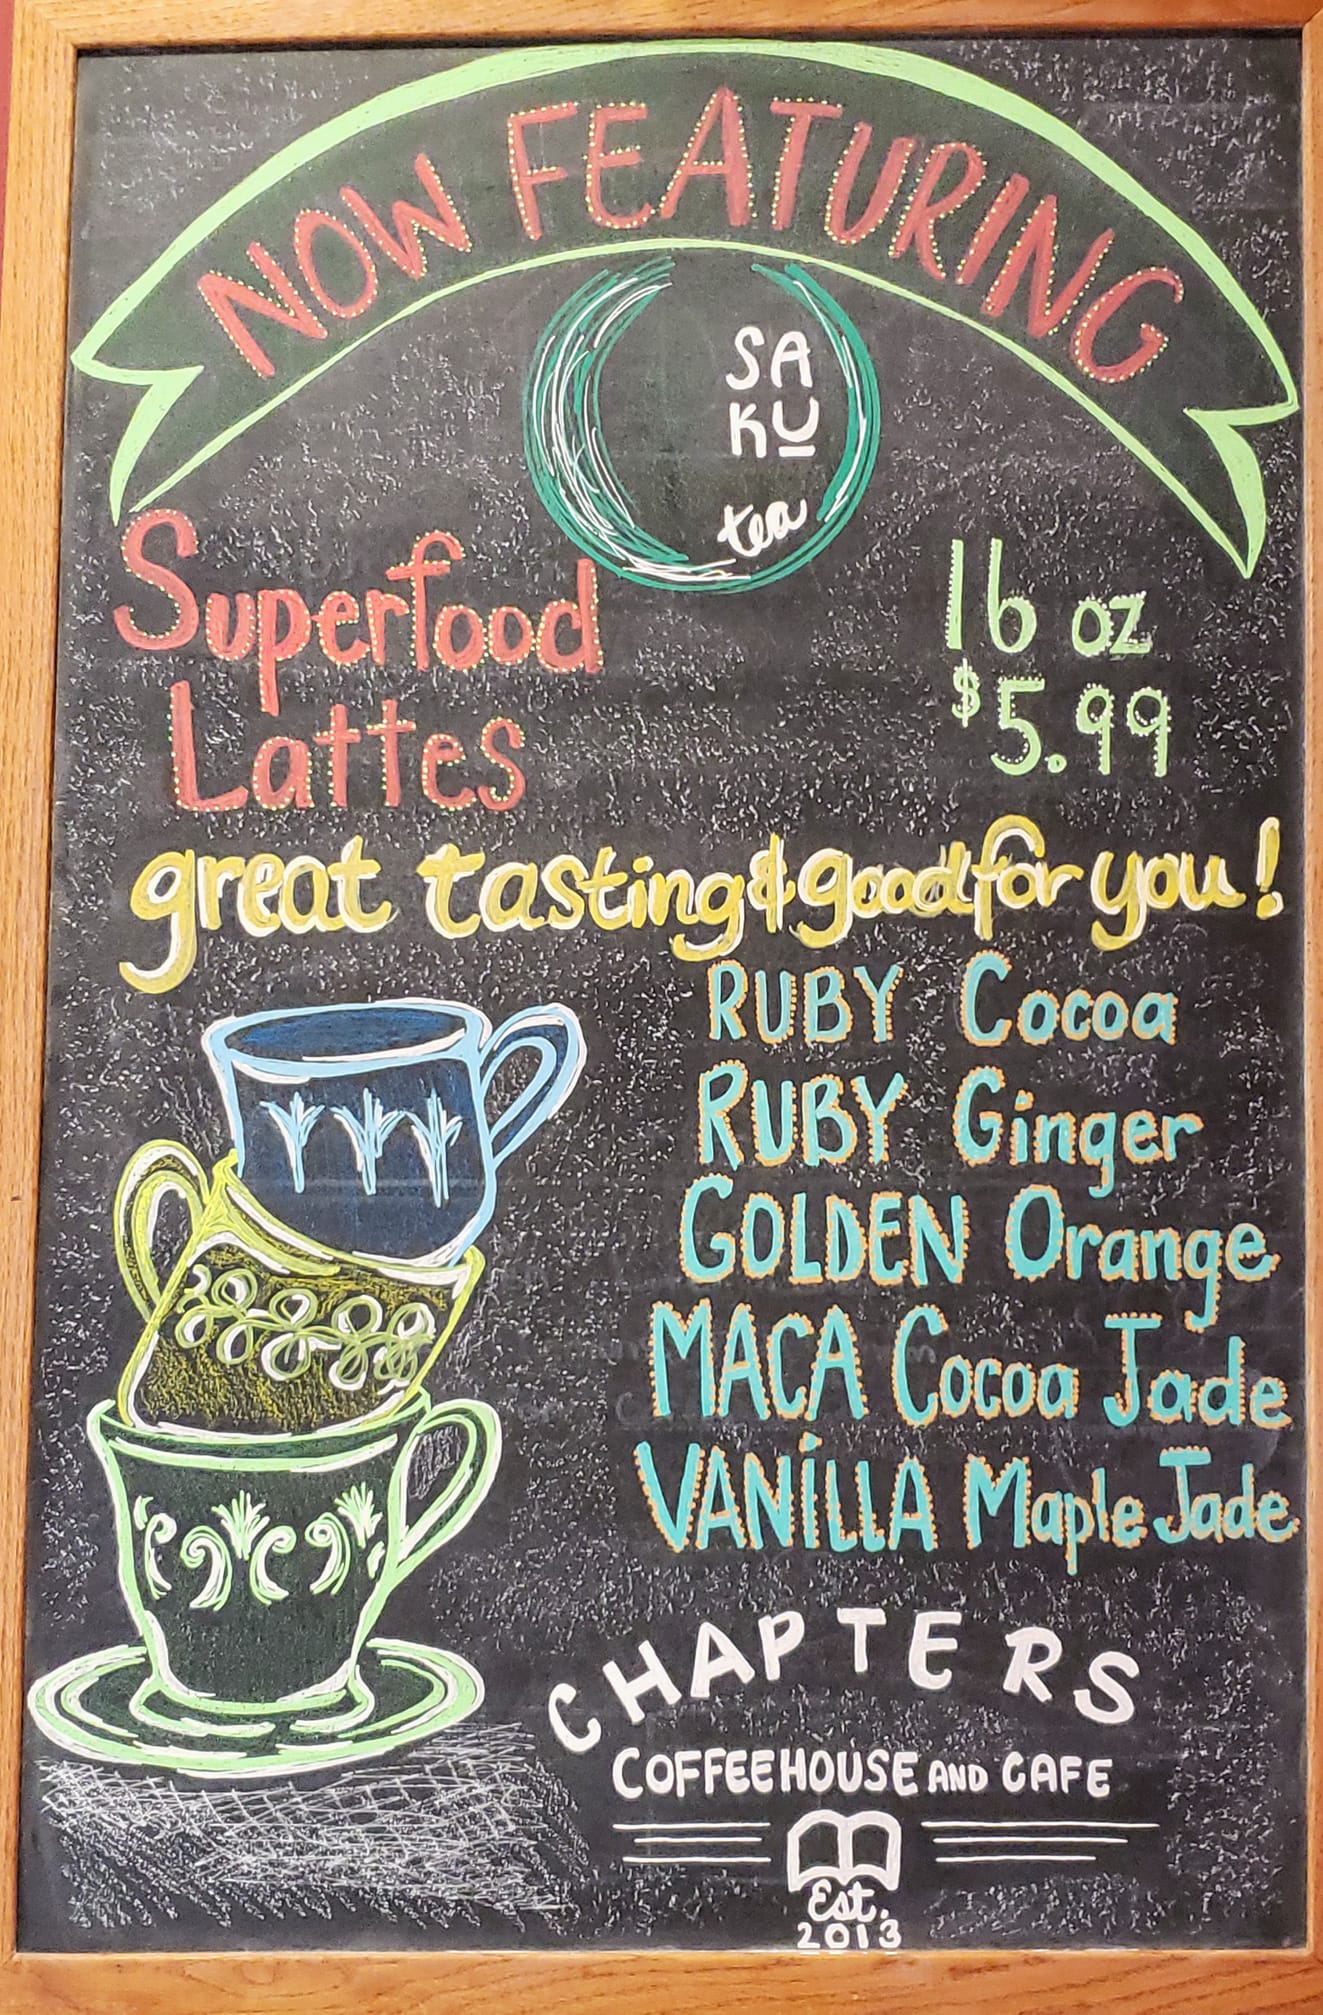 NOW FEATURING
SA
KU
tea
Superfood
Lattes
16 oz
$5.99
great tasting & good for you!
RUBY Cocoa
RUBY Ginger
GOLDEN Orange
MACA Cocoa Jade
VANiLLA Maple Jade
CHAPTERS
COFFEEHOUSE AND CAFE
Est.
2013